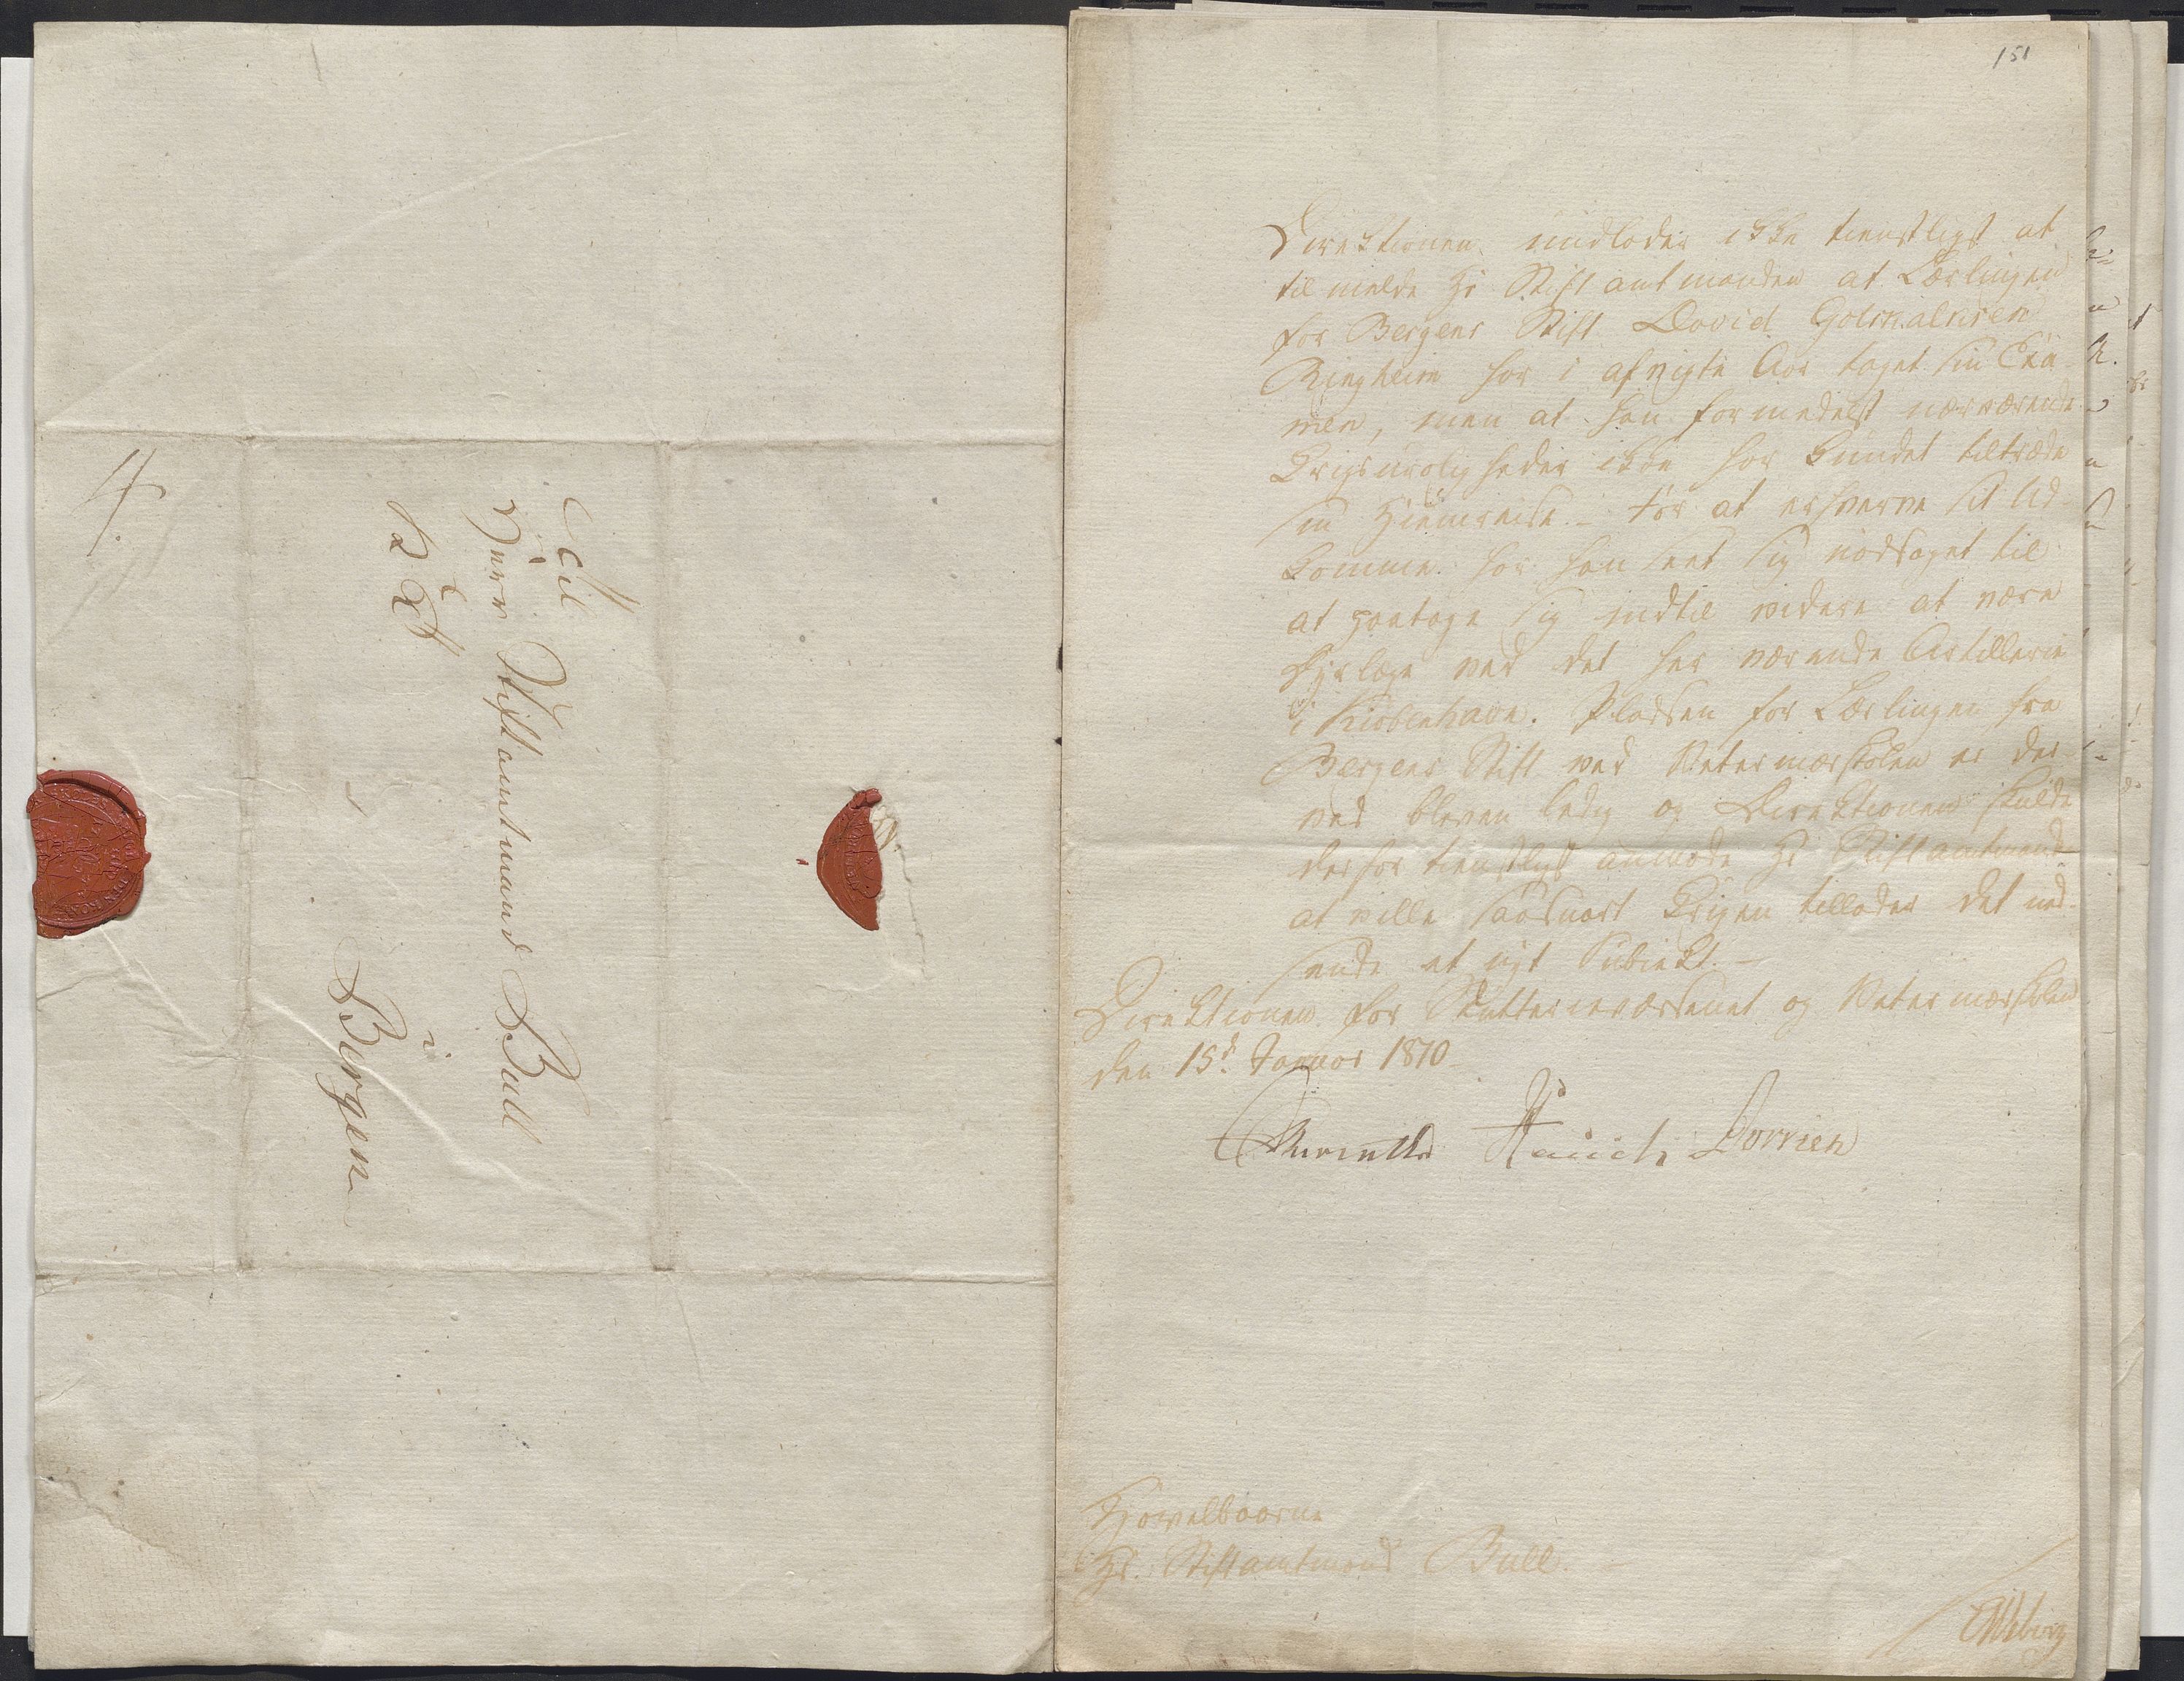 4.
Til
Herr Stiftamtmand Bull
i
Bergen
151
Direktionen undlader ikke tienstligst at
tilmelde Hr Stiftamtmanden at Lærlingen
for Bergens Stift David Gotskalksen
Ringheim har i afvigte Aar taget sin Exa-
men, men at han formedelst nærværende
Krigsuroligheder ikke har kundet tiltræde
sin Hiemreise. – For at erhverve sit Ud-
komme har han seet sig nødsaget til
at paatage sig indtil videre at være
Dyrlæge ved det her værende Artillerie
i Kiøbenhavn. Pladsen for Lærlingen fra
Bergens Stift ved Veterinærskolen er der-
ved bleven ledig og Direktionen skulde
derfor tienstligst anmode Hr Stiftamtmand
at ville saasnart Krigen tillader det ned-
sende et nyt Subiekt. –
Direktionen for Stutterievæsenet og Veterinærskolen
den 15d Januar 1810
Hauch
Høivelbaarne
Hr. Stiftamtmand Bull. –